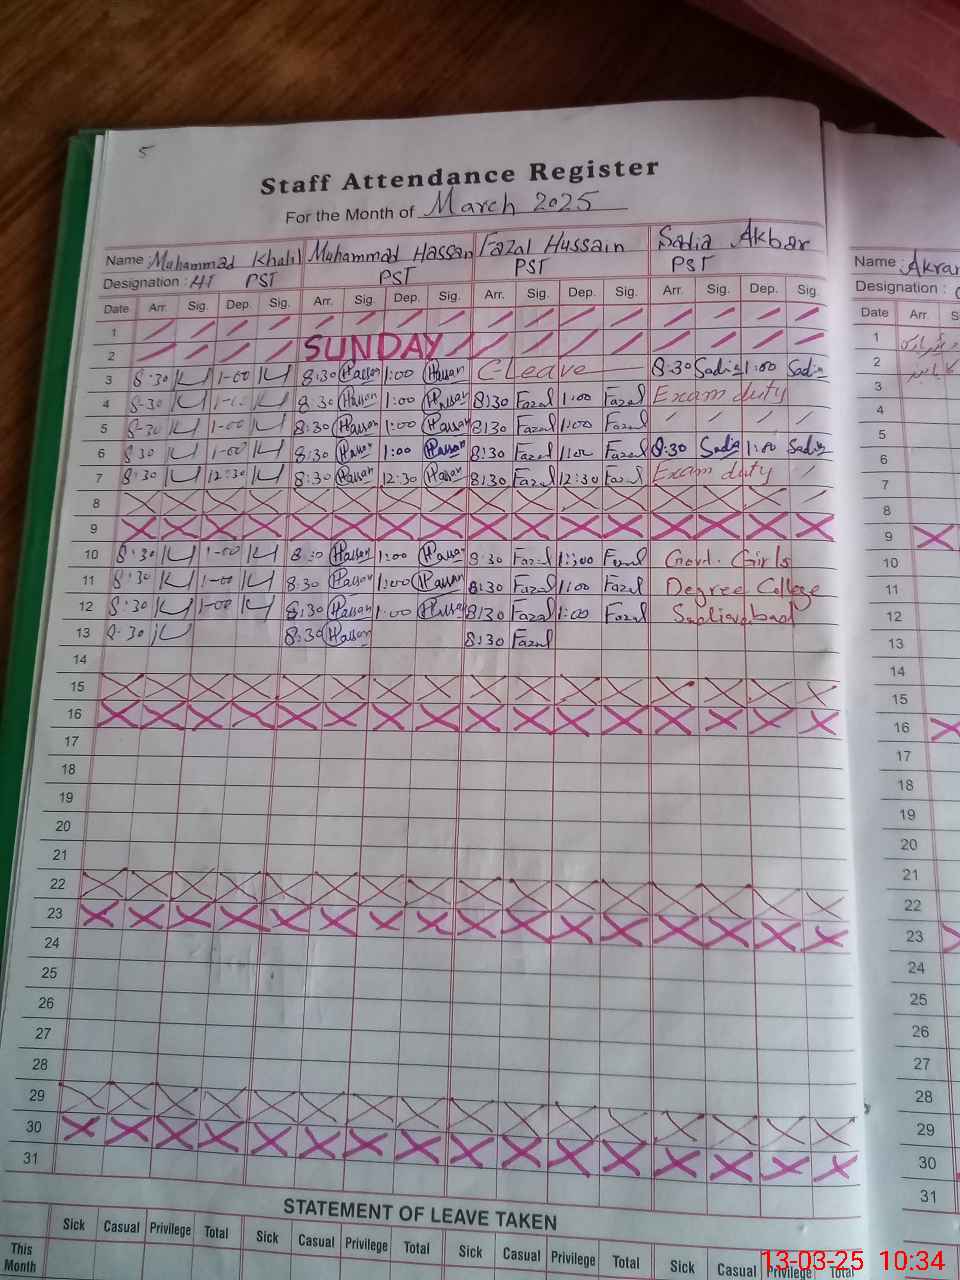 5
Staff Attendance Register
For the Month of March 2025
Name : Muhammad Khalil Muhammad Hassan Fazal Hussain Sadia Akbar
Designation : PST PST PST PST
Date Arr. Sig. Dep. Sig. Arr. Sig. Dep. Sig. Arr. Sig. Dep. Sig. Arr. Sig. Dep. Sig.
1
2 SUNDAY
3 8:30 1-00 8:30 Hassan 1:00 Hassan C-Leave 8:30 Sadia 1:00 Sadia
4 8-30 8:30 Hassan 1:00 Hassan 8:30 Fazal 1:00 Fazal Exam duty
5 8-30 1-00 8:30 Hassan 1:00 Hassan 8:30 Fazal 1:00 Fazal
6 8:30 1-00 8:30 Hassan 1:00 Hassan 8:30 Fazal 1:00 Fazal 8:30 Sadia 1:00 Sadia
7 8:30 12:30 8:30 Hassan 12:30 Hassan 8:30 Fazal 12:30 Fazal Exam duty
8
9
10 8:30 1-00 8:30 Hassan 1:00 Hassan 8:30 Fazal 1:00 Fazal Govt. Girls
11 8:30 1-00 8:30 Hassan 1:00 Hassan 8:30 Fazal 1:00 Fazal Degree College
12 8:30 1-00 8:30 Hassan 1:00 Hassan 8:30 Fazal 1:00 Fazal
13 8-30 8:30 Hassan 8:30 Fazal
14
15
16
17
18
19
20
21
22
23
24
25
26
27
28
29
30
31
STATEMENT OF LEAVE TAKEN
Sick Casual Privilege Total Sick Casual Privilege Total Sick Casual Privilege Total Sick Casual Privilege Total
This Month
Name : Akram
Designation :
Date Arr.
1
2
3
4
5
6
7
8
9
10
11
12
13
14
15
16
17
18
19
20
21
22
23
24
25
26
27
28
29
30
31
13-03-25 10:34